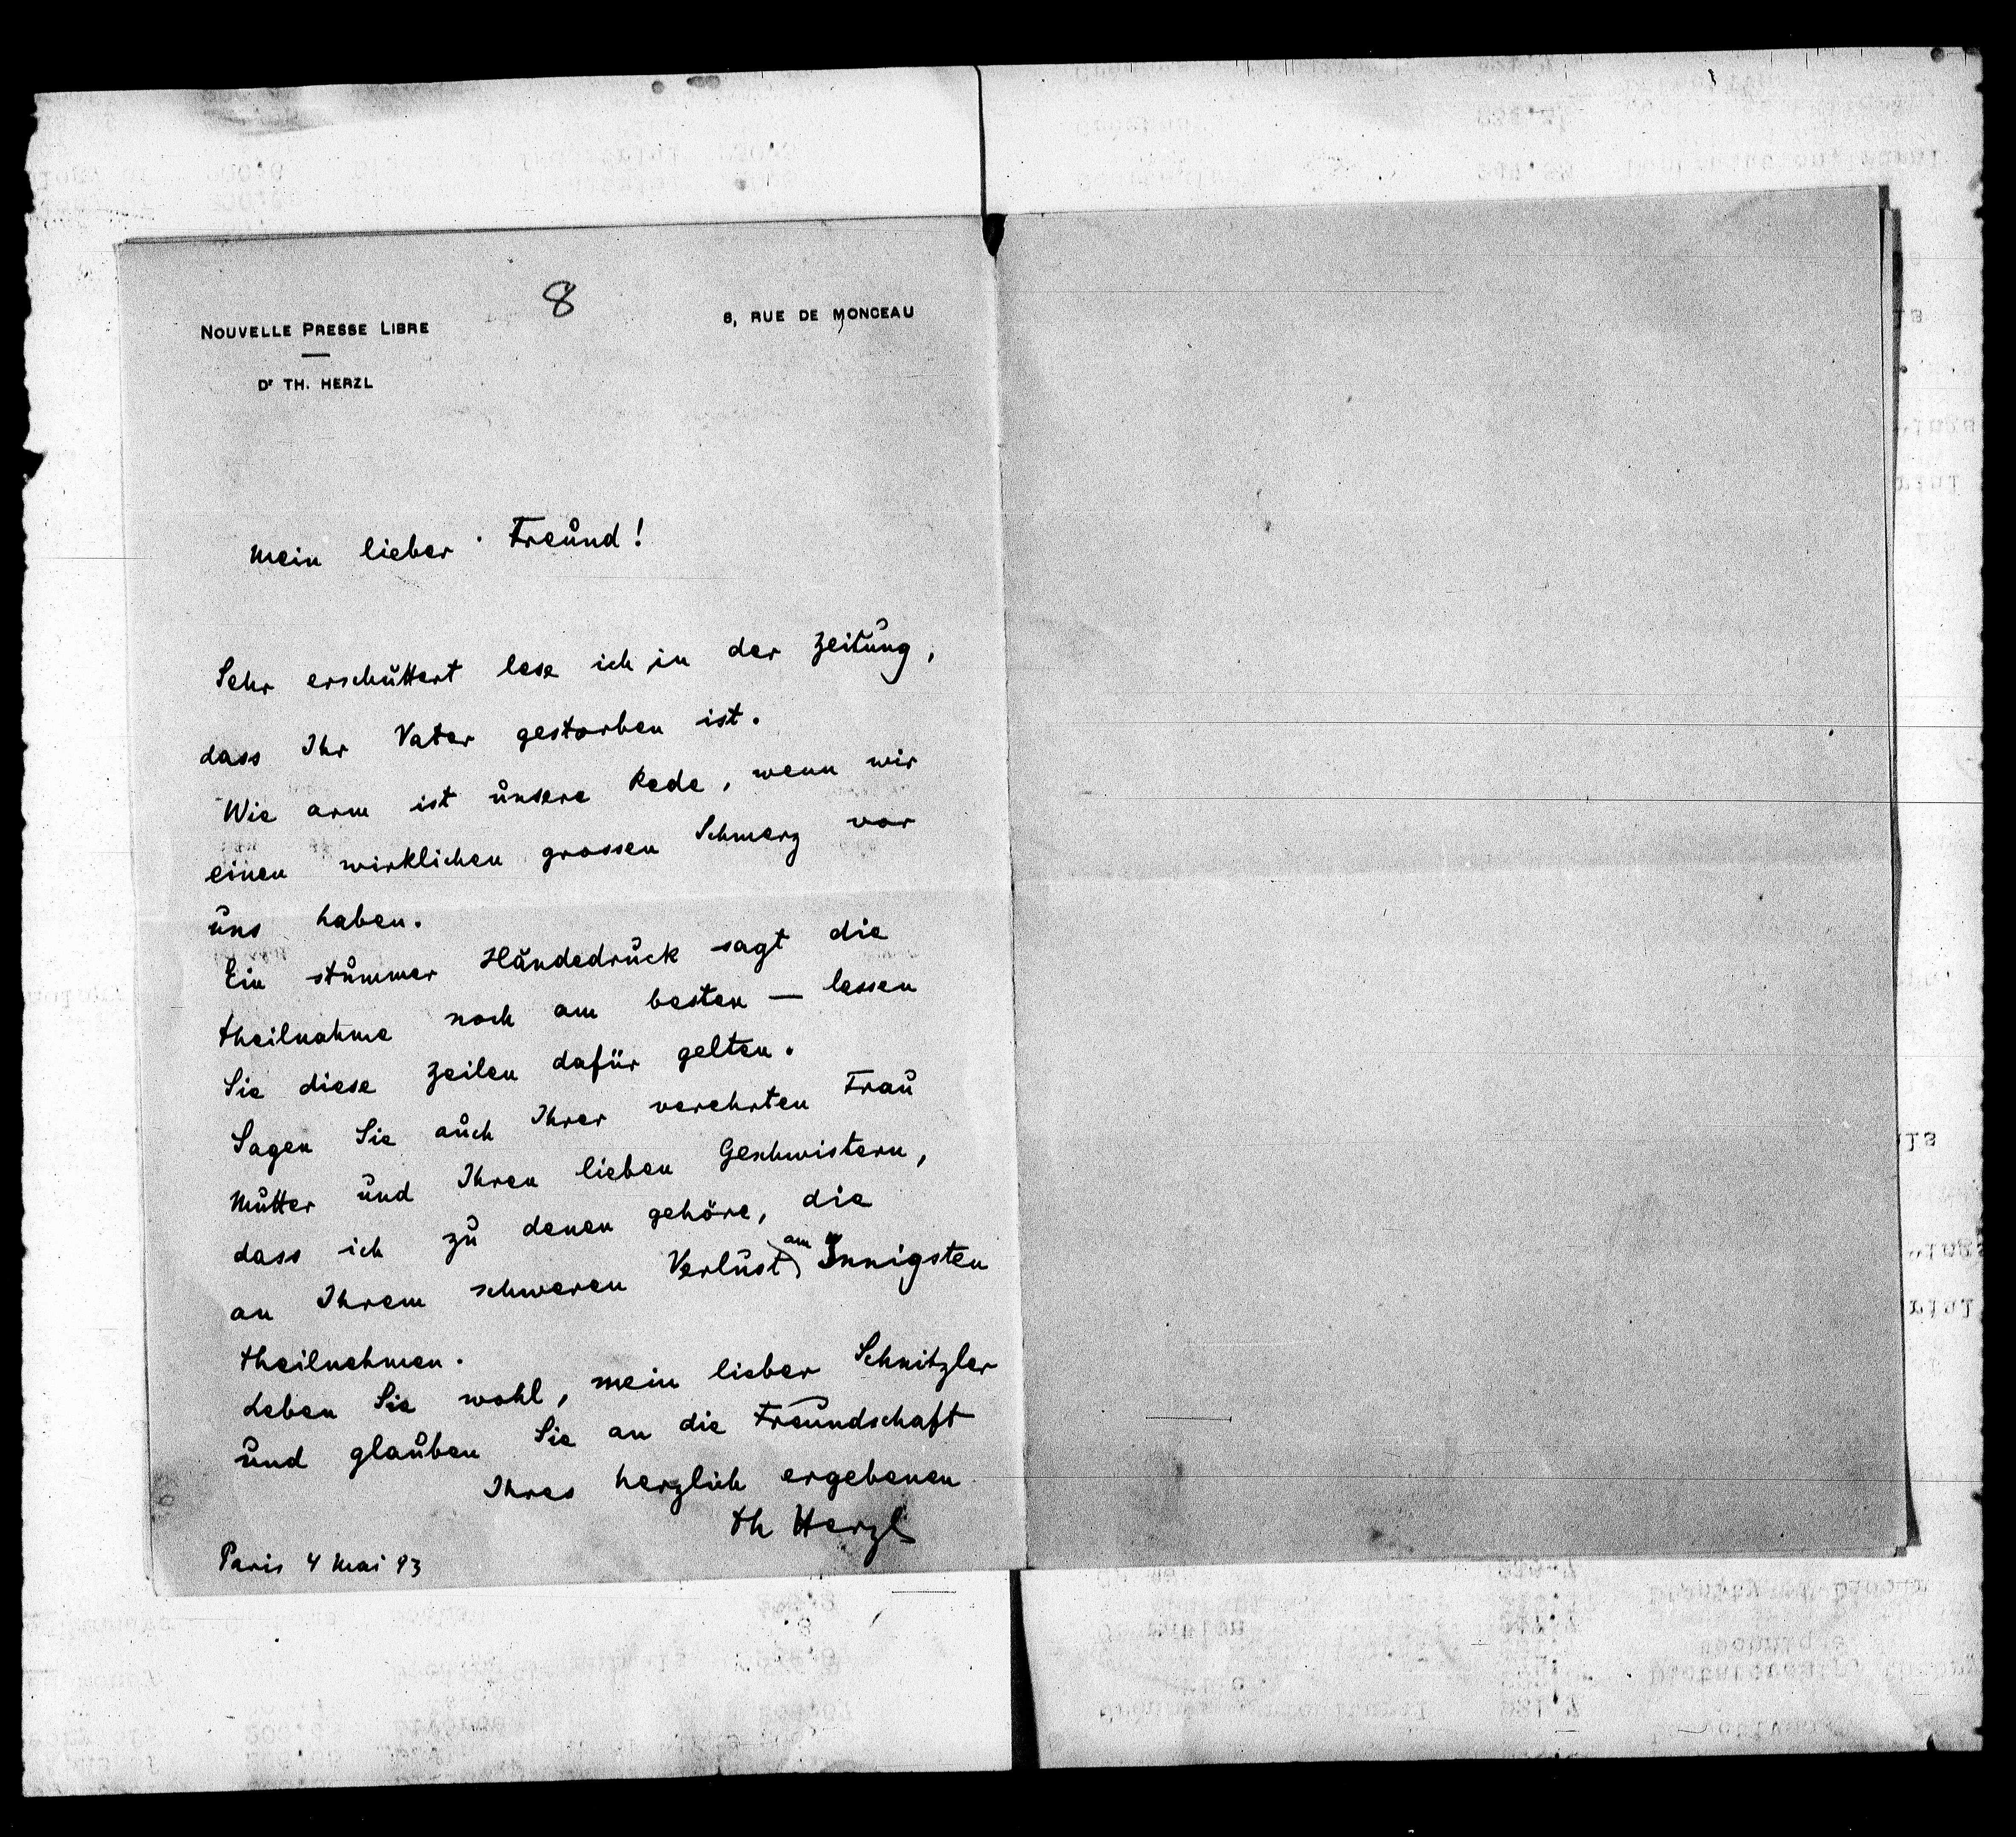 8
NOUVELLE PRESSE LIBRE
8, RUE DE MONCEAU
Dr TH. HERZL
Mein lieber Freund!
Sehr erschüttert lese ich in der Zeitung,
dass Ihr Vater gestorben ist.
Wie arm ist unsere Rede, wenn wir
einen wirklichen grossen Schmerz vor
uns haben.
Ein stummer Händedruck sagt die
Theilnahme noch am besten — lassen
Sie diese Zeilen dafür gelten.
Sagen Sie auch Ihrer verehrten Frau
Mutter und Ihren lieben Geschwistern,
dass ich zu denen gehöre, die
an Ihrem schweren Verlust am Innigsten
theilnehmen.
Leben Sie wohl, mein lieber Schnitzler
und glauben Sie an die Freundschaft
Ihres herzlich ergebenen
Th Herzl
Paris 4 Mai 93